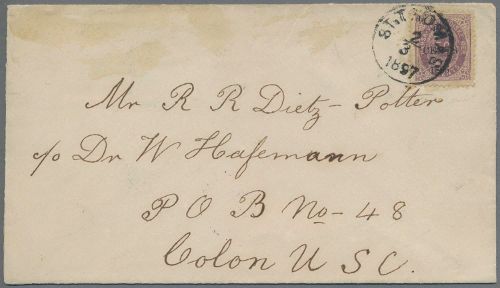 ST. THOMAS
2
3
1897
Mr R R Dietz-Potter
c/o Dr W Hafemann
P O B No-48
Colon U S C.